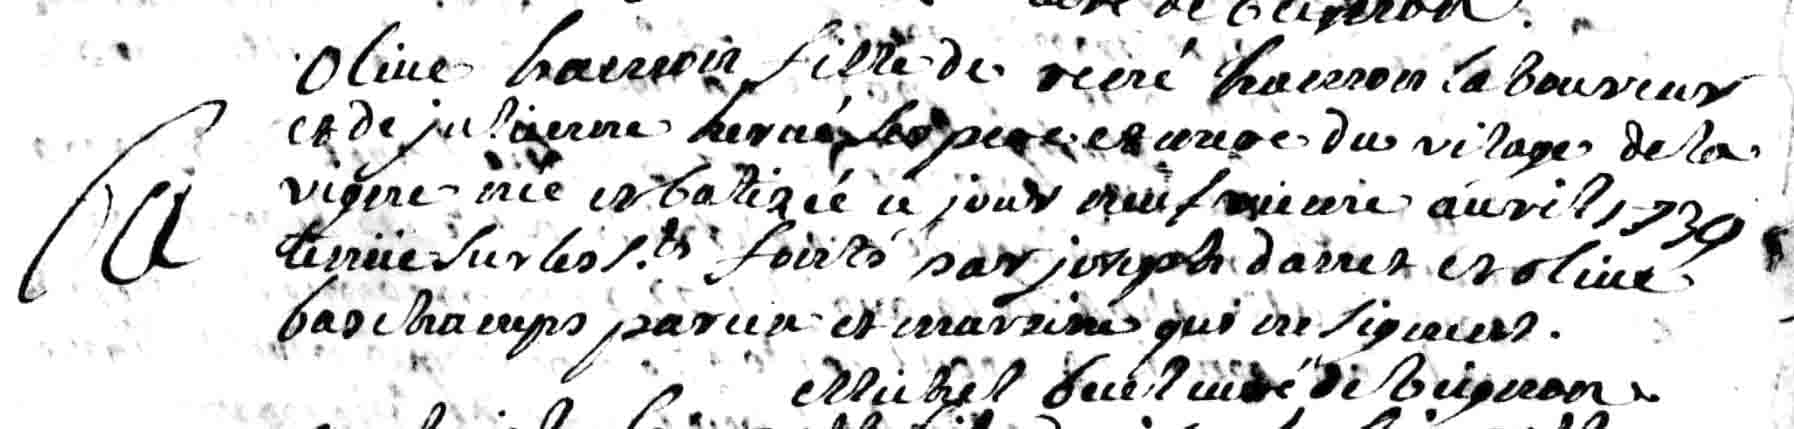 de beignon.
Olive hamon fille de rené hamon laboureur
et de julienne hervé ses pere et mere du vilage de la
vigne née et batizée ce jour neufvieme auvril 1739
tenüe sur les s.ts fonts par joseph danet et olive
bas champs parein et mareine qui ne signent.
Michel curé de beignon.